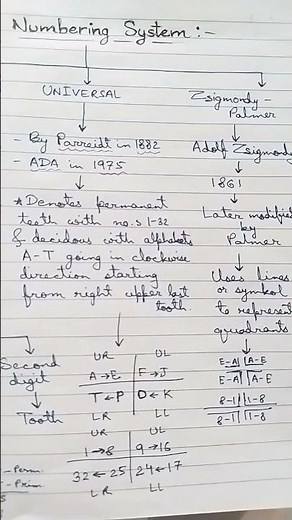 Numbering System :-
UNIVERSAL
- By Parreidt in 1882
- ADA in 1975
* Denotes permanent
teeth with no.s 1-32
& decidous with alphabets
A-T going in clockwise
direction starting
from right upper last
tooth.
UR UL
A→E F→J
T←P O←K
LR LL
UR UL
1→8 9→16
32←25 24←17
LR LL
Zsigmondy-
Palmer
Adolf Zsigmondy
1861
Later modified
by
Palmer
Uses lines
or symbol
to represent
quadrants
E-A A-E
E-A A-E
8-1 1-8
8-1 1-8
Second
digit
Tooth
- Perm.
- Prim